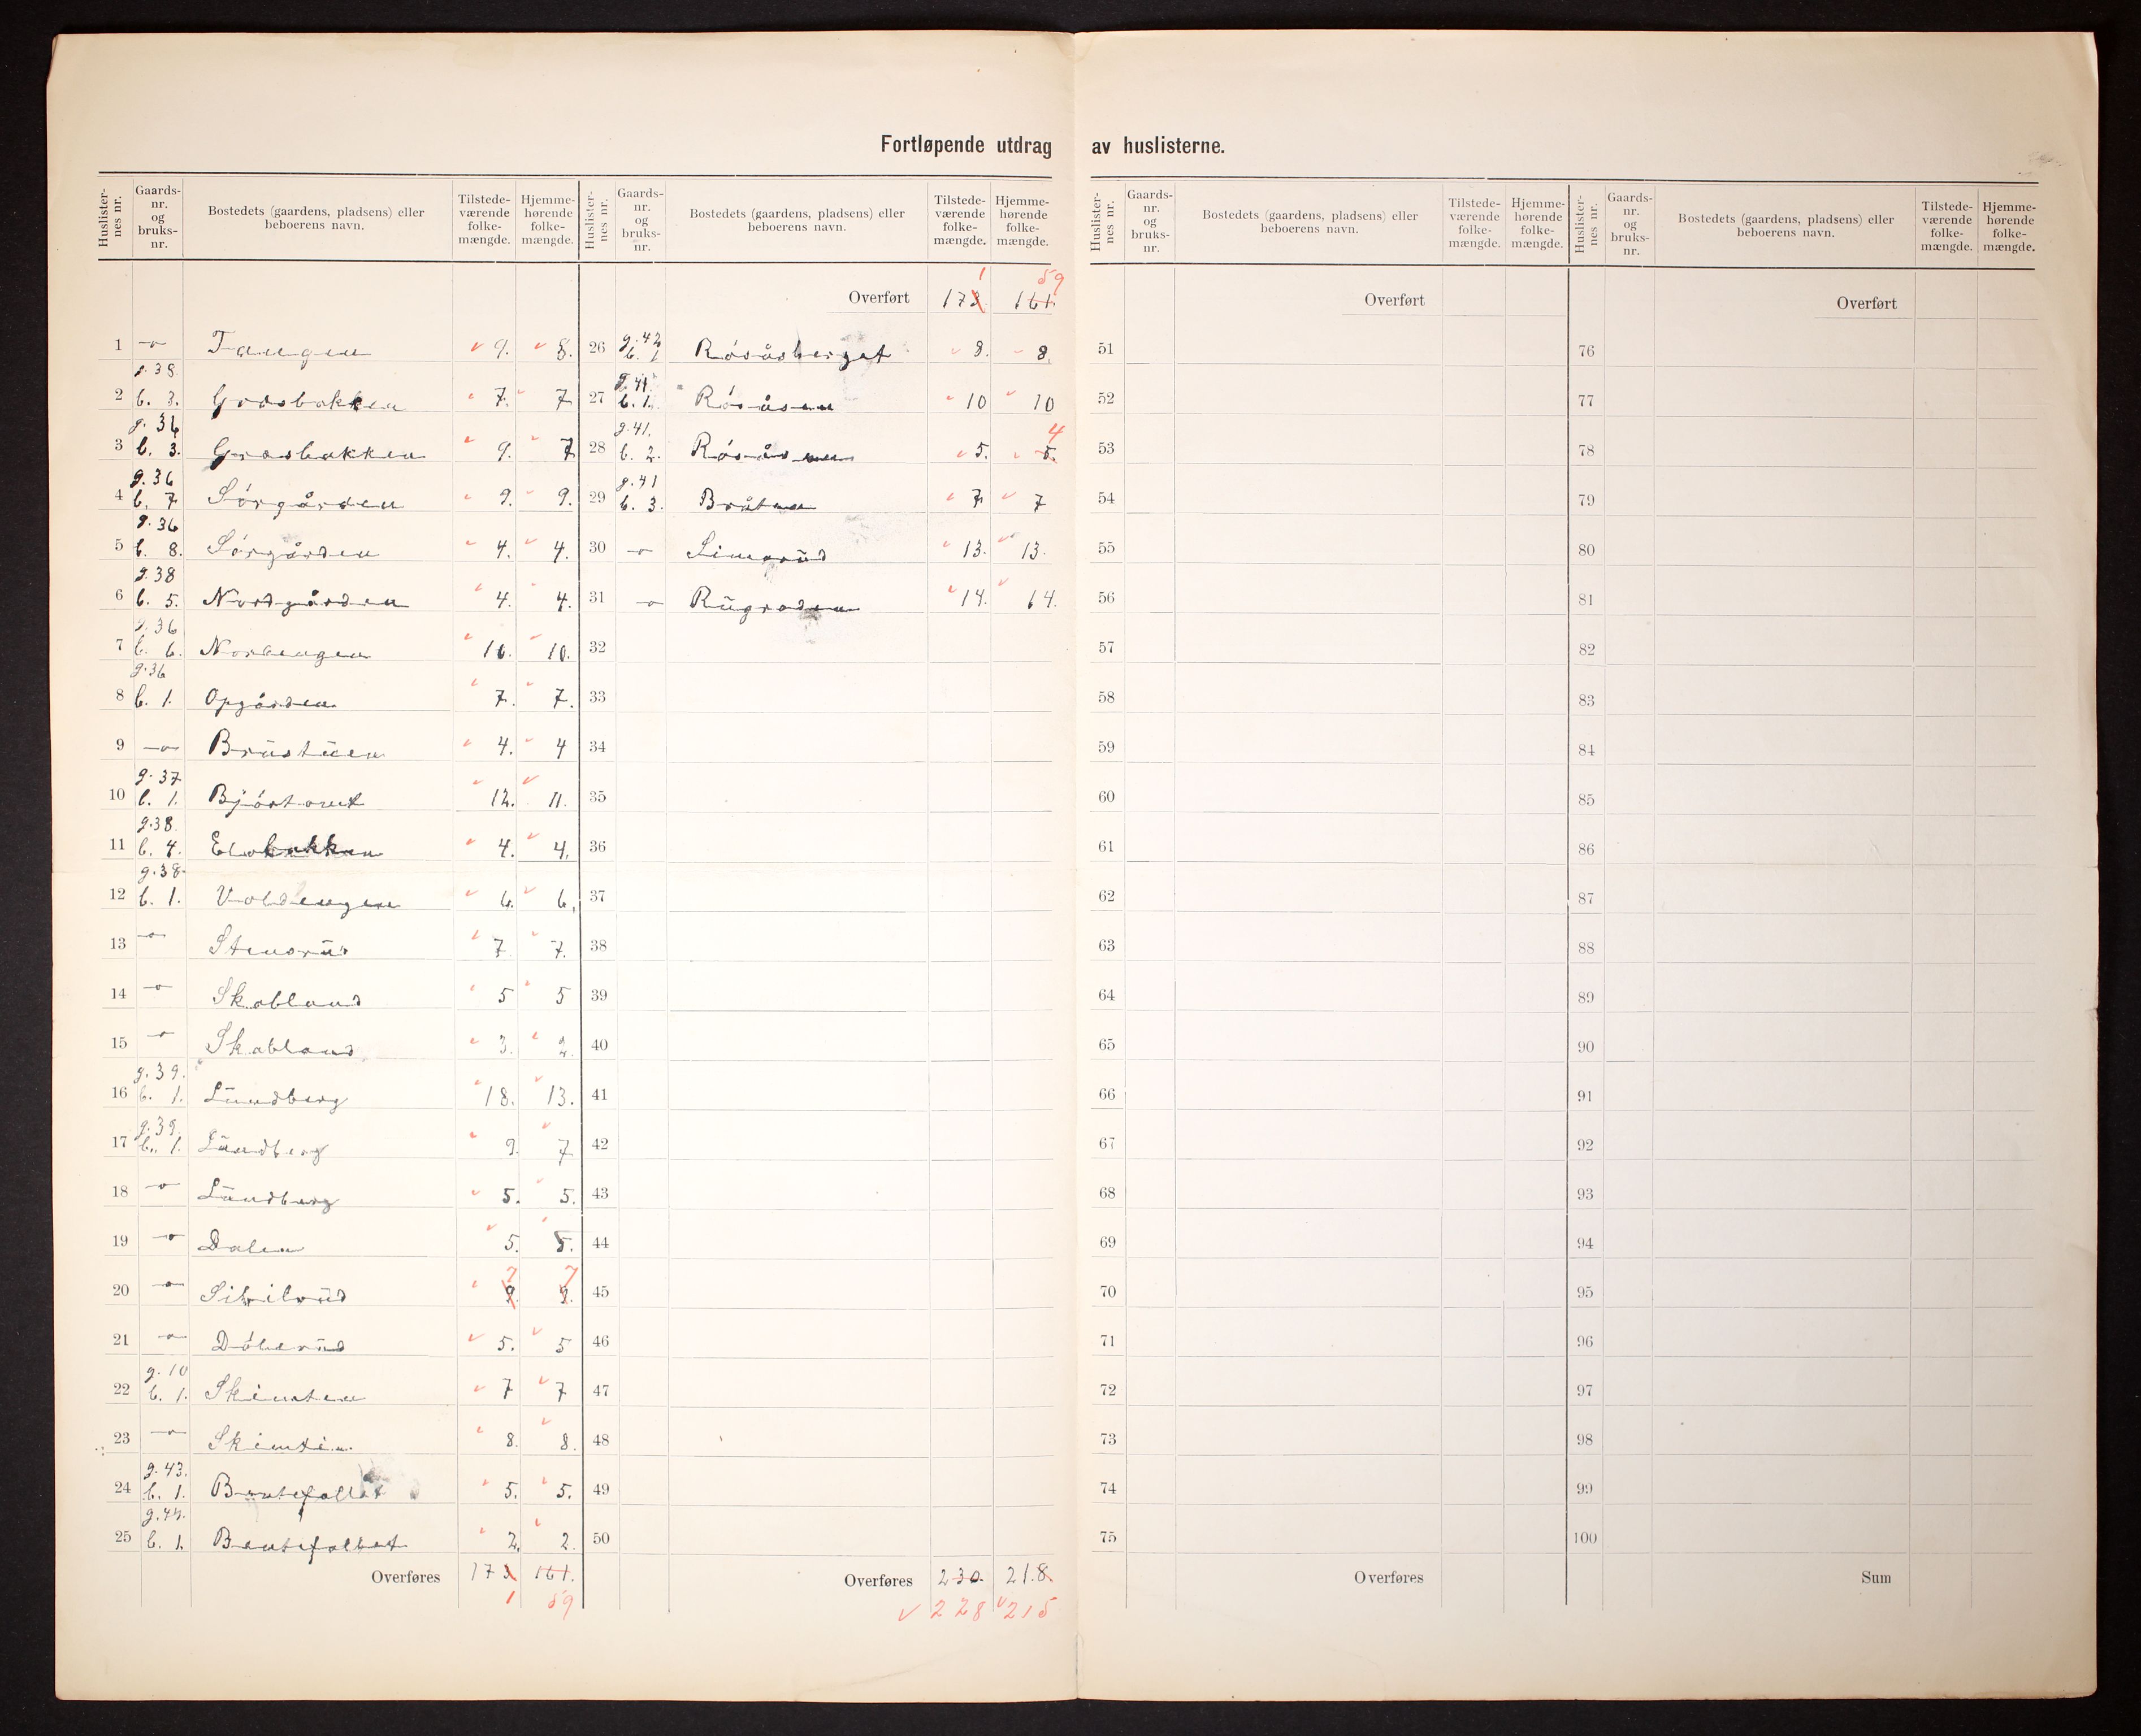 Fortløpende utdrag av huslisterne.
Huslisternes nr. Gaards-nr. og bruks-nr. Bostedets (gaardens, pladsens) eller beboerens navn. Tilstedeværende folkemængde. Hjemmehørende folkemængde.
Huslisternes nr. Gaards-nr. og bruks-nr. Bostedets (gaardens, pladsens) eller beboerens navn. Tilstedeværende folkemængde. Hjemmehørende folkemængde.
1 Tangen 9. 8.
g. 38
2 b. 3. 7. 7
g. 36
3 b. 3. Grasbakken 9. 7
g. 36
4 b. 7 Sörgården 9. 9.
g. 36
5 b. 8. Sörgården 4. 4.
g. 38
6 b. 5. Nordgården 4. 4.
g. 36
7 b. 6. 10. 10.
g. 36
8 b. 1. Opgården 7. 7.
9 Brüstüen 4. 4
g. 37
10 b. 1. 12. 11.
g. 38.
11 b. 4. 4. 4.
g. 38.
12 b. 1. Voldengen 6. 6.
13 Stensrüd 7 7.
14 5 5
15 3. 2.
g. 39.
16 b. 1. Lündberg 18. 13.
g. 39.
17 b. 1. Lündberg 9. 7
18 Lündberg 5. 5.
19 Dalen 5. 5.
7 7
20 9. 9.
21 Dölerüd 5. 5
g. 10
22 b. 1. 7 7
23 8. 8.
g. 43.
24 b. 1. 5. 5.
g. 44.
25 b. 1. 2. 2.
Overføres 173 161.
1 59
1 59
Overført 173 161.
g. 42
26 b. 1 Rösåsberget 8. 8.
g. 41.
27 b. 1. Rösåsen 10 10
g. 41. 4
28 b. 2. Rösåsen 5. 5.
g. 41
29 b. 3. Bråten 7 7
30 13. 13.
31 14. 14.
32
33
34
35
36
37
38
39
40
41
42
43
44
45
46
47
48
49
50
Overføres 230. 218.
228 215
Huslisternes nr. Gaards-nr. og bruks-nr. Bostedets (gaardens, pladsens) eller beboerens navn. Tilstedeværende folkemængde. Hjemmehørende folkemængde.
Overført
51
52
53
54
55
56
57
58
59
60
61
62
63
64
65
66
67
68
69
70
71
72
73
74
75
Overføres
Huslisternes nr. Gaards-nr. og bruks-nr. Bostedets (gaardens, pladsens) eller beboerens navn. Tilstedeværende folkemængde. Hjemmehørende folkemængde.
Overført
76
77
78
79
80
81
82
83
84
85
86
87
88
89
90
91
92
93
94
95
96
97
98
99
100
Sum